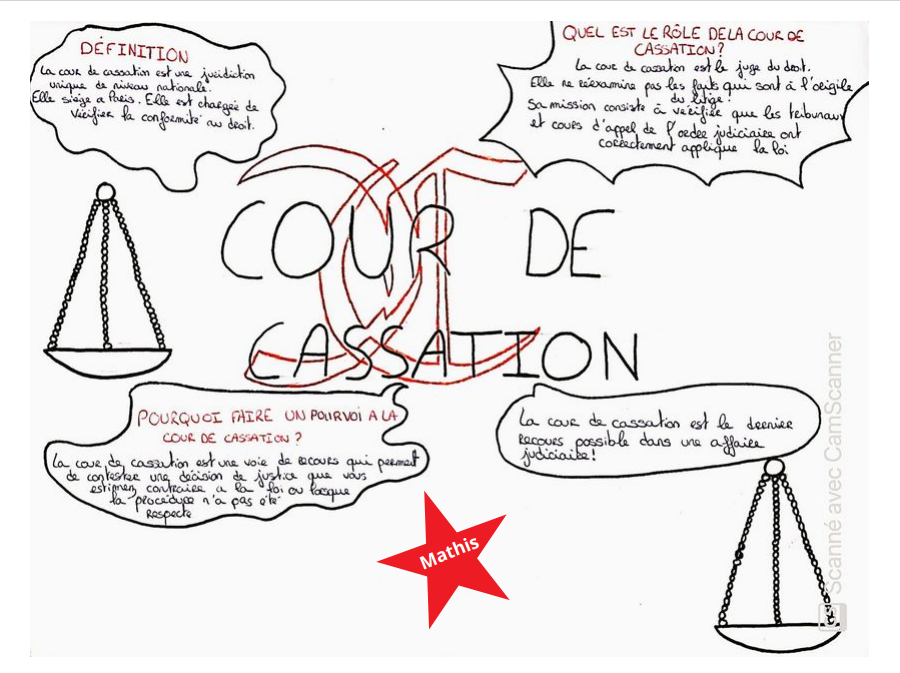 DÉFINITION
La cour de cassation est une juridiction
unique de niveau nationale.
Elle siège a Paris. Elle est chargée de
Vérifier la conformité au droit.
QUEL EST LE RÔLE DE LA COUR DE
CASSATION ?
La cour de cassation est le juge du droit.
Elle ne réexamine pas les faits qui sont à l'origile
du litige !
Sa mission consiste à vérifier que les tribunaux
et cours d'appel de l'ordre judiciaire ont
correctement applique la loi
COUR DE
CASSATION
POURQUOI FAIRE UN POURVOI A LA
COUR DE CASSATION ?
La cour de cassation est une voie de recours qui permet
de contester une décision de justice que vous
estimez contraire a la loi ou lorsque
la procédure n'a pas été
Respecte
La cour de cassation est le dernier
recours possible dans une affaire
judiciaire !
Mathis
Scanné avec CamScanner